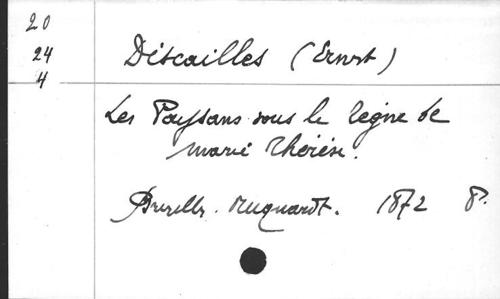 20
24
4
Discailles (Ernst)
Les Paysans sous le règne de
marie Thérèse.
Bruxelles. Muquardt. 1872 8°.